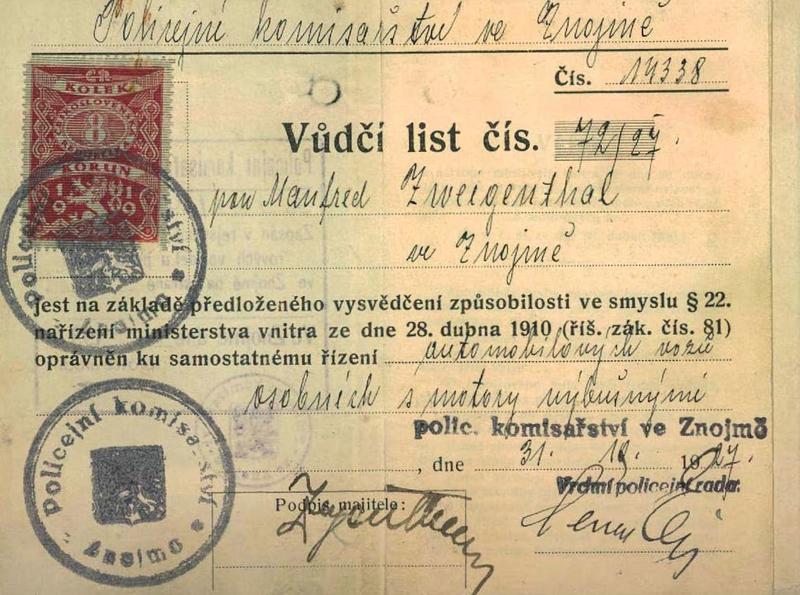 Policejné komisařství ve Znojmě
Čís. 14338
Vůdčí list čís. 72/27.
pan Manfred Zweigenthal
ve Znojmě
KOLEK
ČESKOSLOVENSKÁ
8
KORUN
1919
jest na základě předloženého vysvědčení způsobilosti ve smyslu § 22.
nařízení ministerstva vnitra ze dne 28. dubna 1910 (říš. zák. čís. 81)
oprávněn ku samostatnému řízení automobilových vozů
osobních s motory výbušnými
polic. komisařství ve Znojmě
, dne 31. 12. 1927.
Vrchní policejní rada:
Podpis majitele:
Policejní komisařství
Znojmo